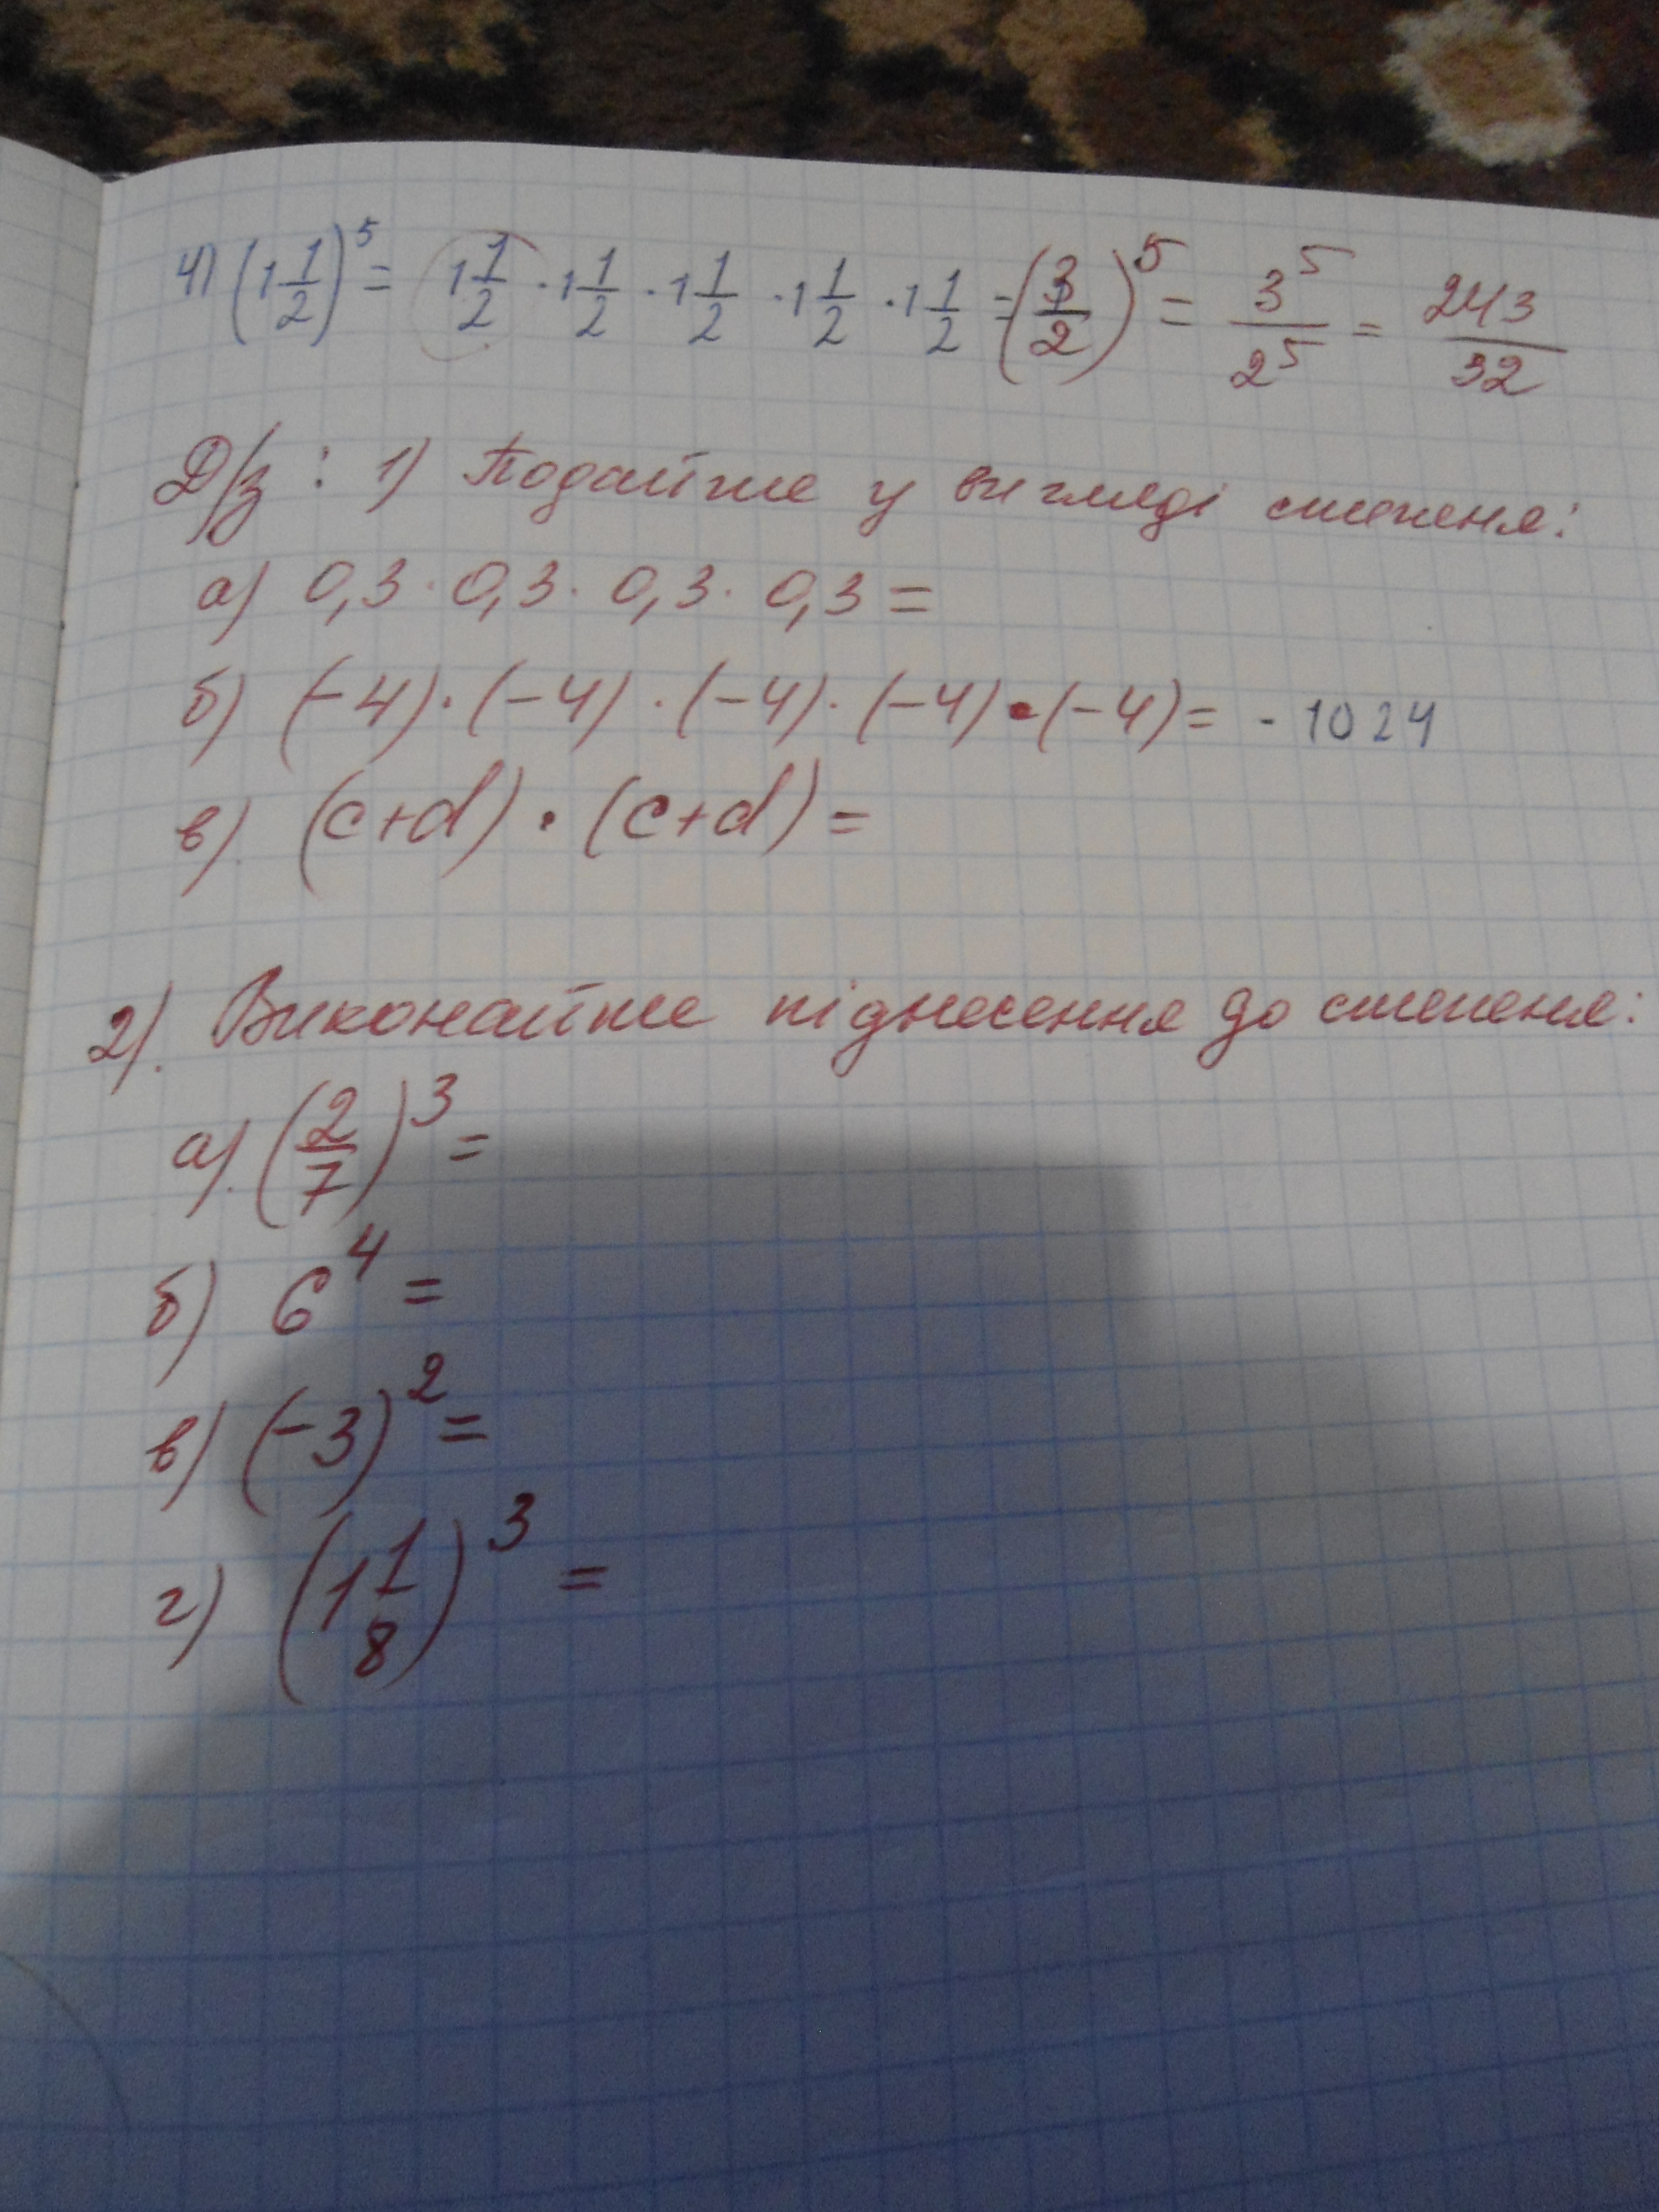 4) (1 1/2)^5 = 1 1/2 · 1 1/2 · 1 1/2 · 1 1/2 · 1 1/2 = (3/2)^5 = 3^5/2^5 = 243/32
Д/з: 1) Подайте у вигляді степеня:
а) 0,3 · 0,3 · 0,3 · 0,3 =
б) (-4) · (-4) · (-4) · (-4) · (-4) = - 1024
в) (c+d) · (c+d) =
2). Виконайте піднесення до степеня:
а). (2/7)^3 =
б) 6^4 =
в) (-3)^2 =
г) (1 1/8)^3 =